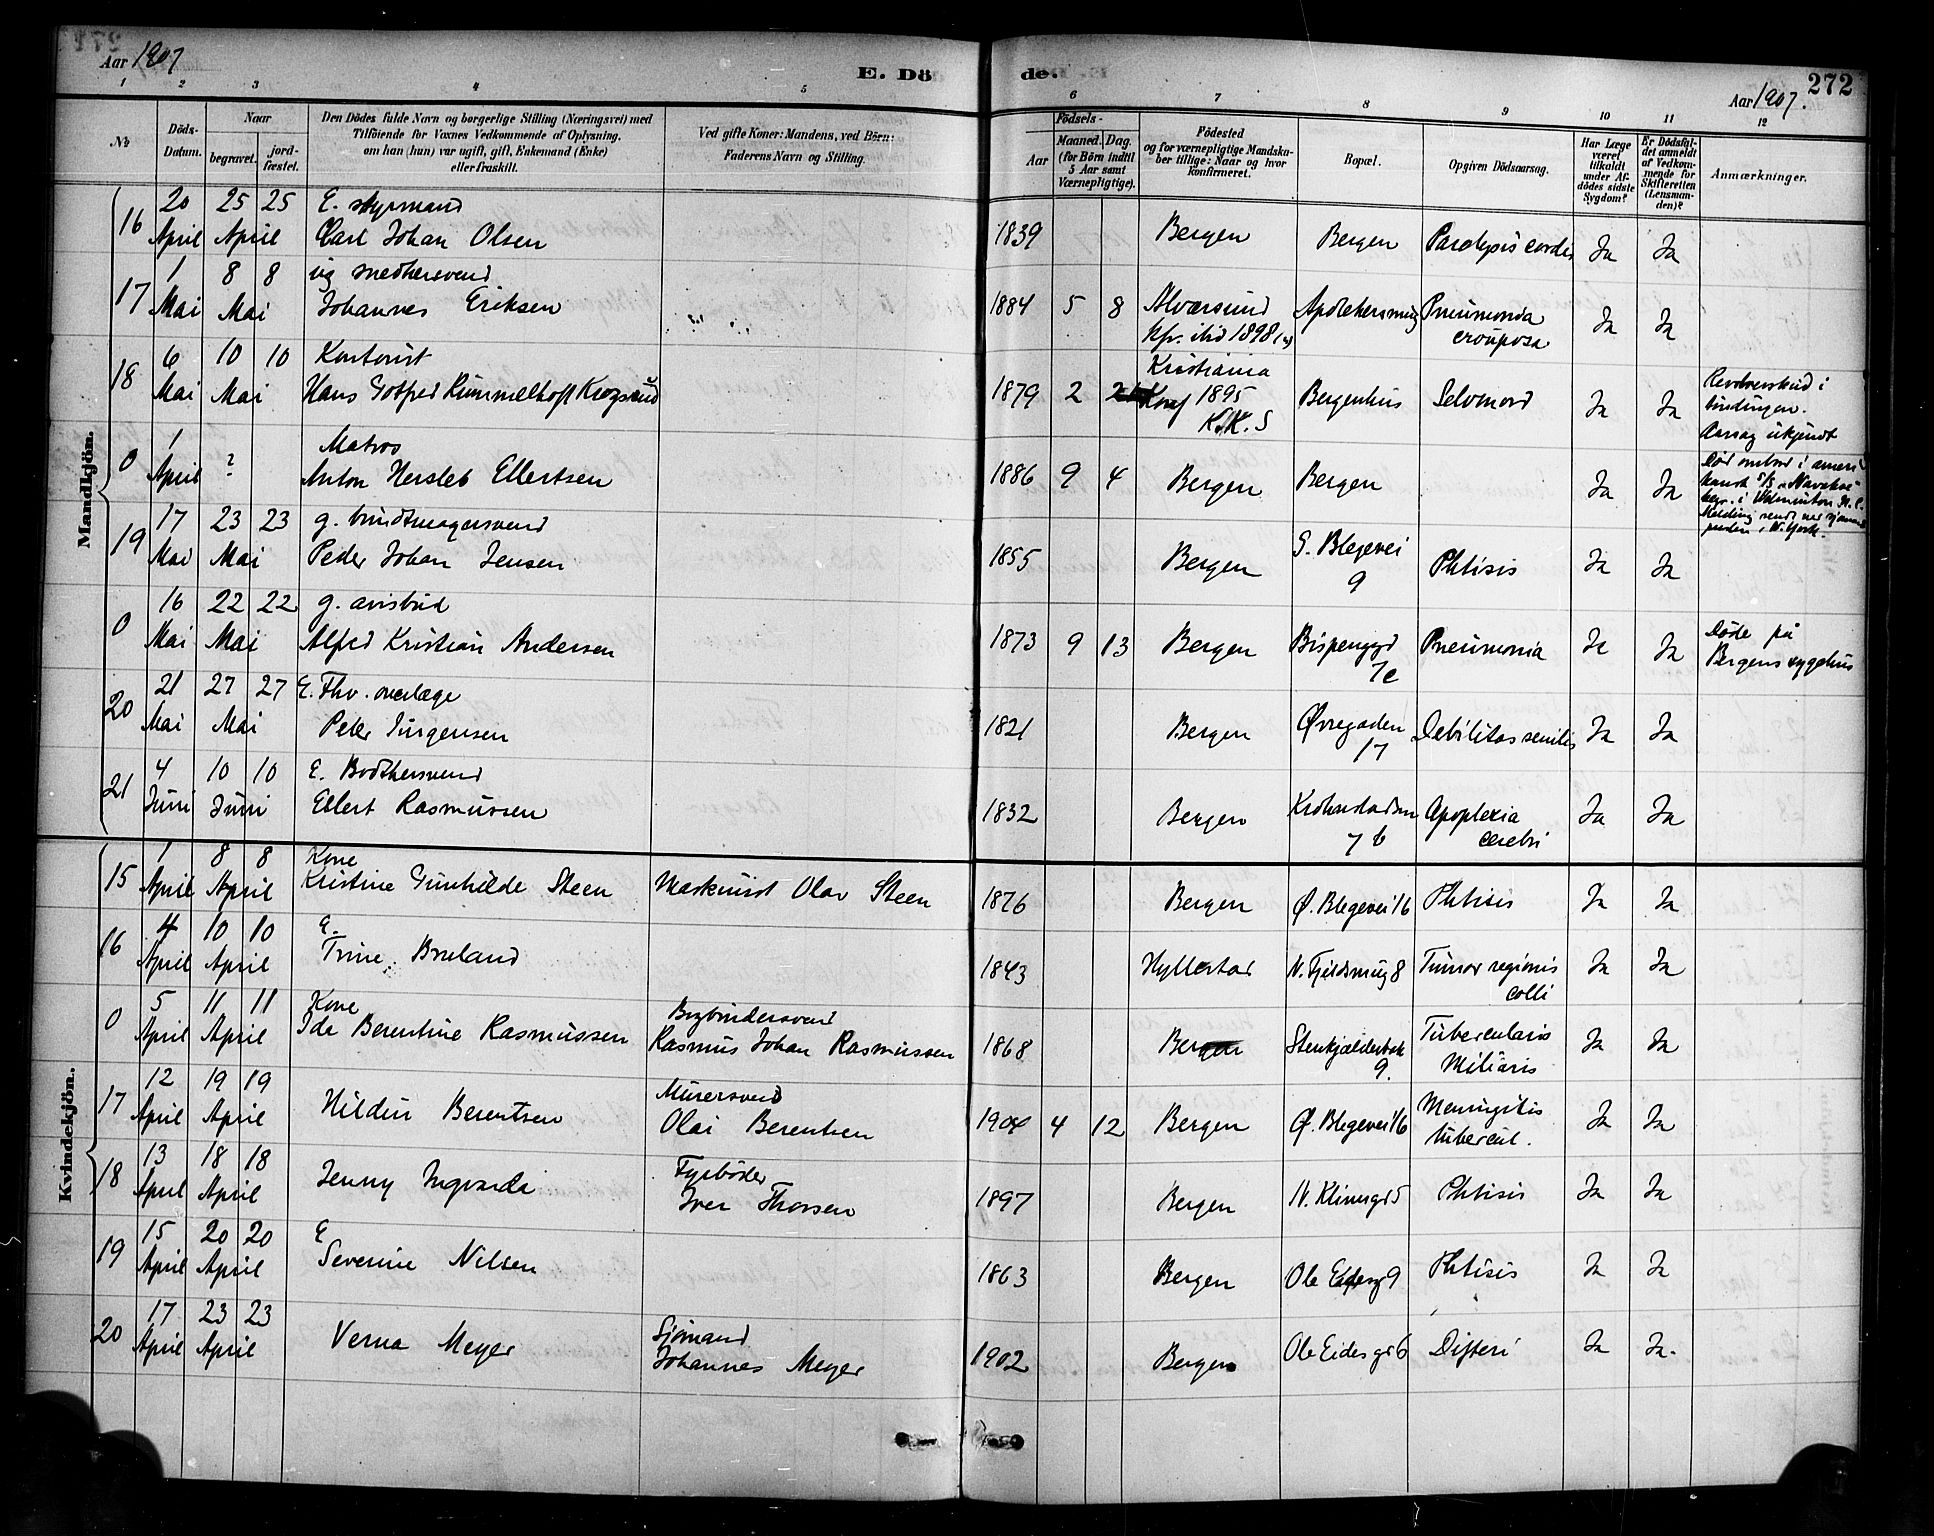 Aar 1907
E. Döde.
272
Aar 1907.
1 2 3 4 5 6 7 8 9 10 11 12
No
Döds-Datum.
Naar
begravet.
jord-fæstet.
Den Dödes fulde Navn og borgerlige Stilling (Næringsvei) med
Tilföiende for Voxnes Vedkommende af Oplysning,
om han (hun) var ugift, gift, Enkemand (Enke)
eller fraskilt.
Ved gifte Koner: Mandens, ved Börn:
Faderens Navn og Stilling.
Födsels-
Aar
Maaned. Dag.
(for Börn indtil
5 Aar samt
Værnepligtige).
Födested
og for værnepligtige Mandska-
ber tillige: Naar og hvor
konfirmeret.
Bopæl.
Opgiven Dödsaarsag.
Har Læge
været
tilkaldt
under Af-
dödes sidste
Sygdom?
Er Dödsfal-
det anmeldt
af Vedkom-
mende for
Skifteretten
(Lensman-
den)?
Anmærkninger.
Mandkjön.
16 20 April 25 25 April E. styrmand
Carl Johan Olsen 1839 Bergen Bergen Paralysis cordis Ja Ja
17 1 Mai 8 8 Mai ug smedhersvend
Johannes Eriksen 1884 5 8 Alværsund Pneumonia crouposa Ja Ja
18 6 Mai 10 10 Mai Kontorist
Hans Gotfred 1879 2 Kristiania
Konf 1895
K.K. S Bergenhus Selvmord Ja Ja Revolverskud i
tindingen.
Aarsag ukjendt
0 1 April ? Matros
Anton Hersleb Ellertsen 1886 9 4 Bergen Bergen Ja Ja Død ombord i ameri
kansk S/S
N. York.
19 17 Mai 23 23 Mai g. bundtmagersvend
Peder Johan Jensen 1855 Bergen S. Blegevei
9 Phtisis Ja Ja
0 16 Mai 22 22 Mai g. avisbud
Alfred Kristian Andersen 1873 9 13 Bergen Bispengd
7c Pneumonia Ja Ja Døde på
Bergens sygehus
20 21 Mai 27 27 Mai E. Fhv. overlæge
Peter Jürgensen 1821 Bergen Øvregaden
17 Debilitas senilis Ja Ja
21 4 Juni 10 10 Juni E. Bødkersvend
Ellert Rasmussen 1832 Bergen 7 b Apoplexia
cerebri Ja Ja
Kvindekjön.
15 1 April 8 8 April Kone
Kristine Gunhilde Steen Maskinist Olav Steen 1876 Bergen Ø. Blegevei 16 Phtisis Ja Ja
16 4 April 10 10 April E.
Trine Brueland 1843 Hyllestad N. Fjeldsmug 8 Tumor regionis
colli Ja Ja
0 5 April 11 11 April Kone
Ida Berentine Rasmussen Bogbindersvend
Rasmus Johan Rasmussen 1868 Bergen Stenkjelderbak
9. Tubercularis
Miliaris Ja Ja
17 12 April 19 19 April Hildur Berentsen Murersvend
Olai Berentsen 1904 4 12 Bergen Ø. Blegevei 16 Meningitis
tubercul. Ja Ja
18 13 April 18 18 April Jenny Ingvarda Fyrbøder
Iver Thorsen 1897 Bergen Phtisis Ja Ja
19 15 April 20 20 April E
Severine Nilsen 1863 Bergen Ole Eidesg 9 Phtisis Ja Ja
20 17 April 23 23 April Verna Meyer Sjømand
Johannes Meyer 1902 Bergen Ole Eides gd 6 Difteri Ja Ja.